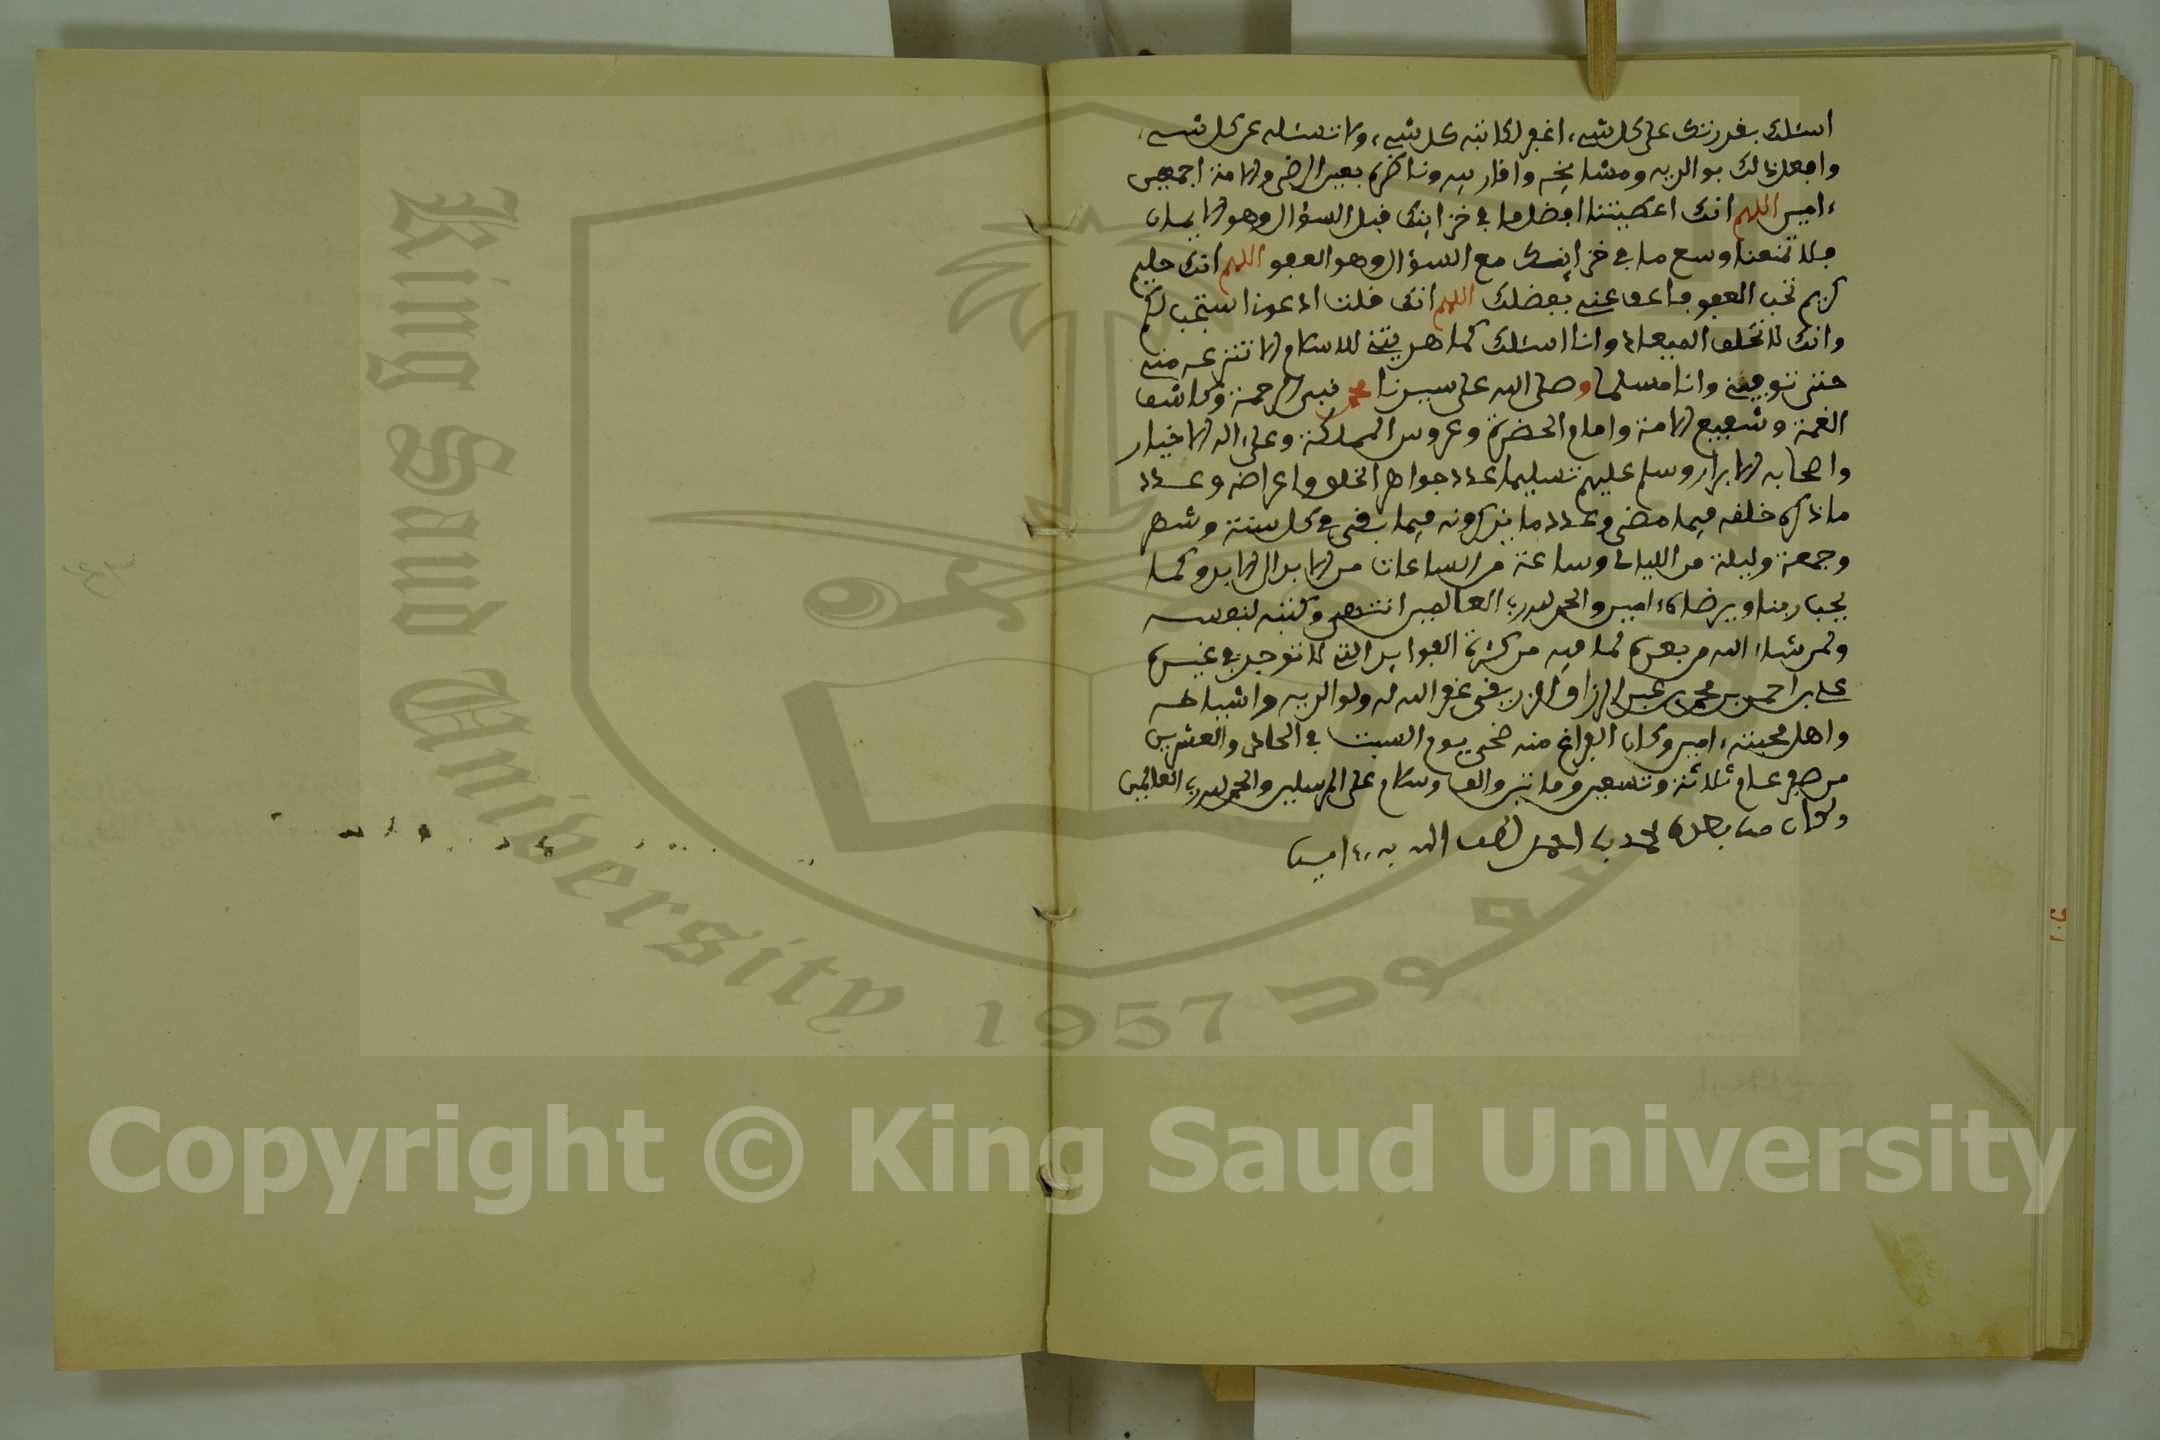 اسئلك بقدرتك على كل شيء اغفر لكاتبه كل شيء ولا تسئله عن كل شيء
وافعل ذلك بوالديه ومشايخه واقاربه وناظره بعين الرضى والامة اجمعين
ءامين اللهم انك اعطيتنا افضل ما في خزاينك قبل السؤال وهو الايمان
فلا تمنعنا وسع ما في خزاينك مع السؤال وهو العفو اللهم انك حليم
كريم تحب العفو فاعف عني بفضلك اللهم انك قلت ادعوني استجب لكم
وانك لا تخلف الميعاد وانا اسئلك كما هديتني للاسلام الا تنزعه مني
حتى تتوفيني وانا مسلما وصلى الله على سيدنا محمد نبي الرحمة وكاشف
الغمة وشفيع الامة وامام الحضرة وعروس المملكة وعلى اله الاخيار
واصحابه الابرار وسلم عليهم تسليما عدد جواهر الخلق واعراضه وعدد
ما ذكره خلقه فيما مضى وعدد ما يذكرونه فيما بقى في كل سنة وشهر
وجمعة وليلة من الليالى وساعة من الساعات من الابد الى الابد وكما
يحب ربنا ويرضاه ءامين والحمد لله رب العالمين انتهى وكتبه لنفسه
ولمن شاء الله من بعده لما فيه من كثرة الفوايد التى لا توجد في غيره
على بن احمد بن محمد بن عبد الرزاق غفر الله له ولوالديه واشياخه
واهل محبته ءامين وكان الفراغ منه ضحى يوم السبت في الحادى والعشرين
من صفر عام ثلاثة وتسعين ومائتين والف وسلام على المرسلين والحمد لله رب العالمين
وكان احمد لطف الله به ءامين
King Saud University
1957
سعود
Copyright © King Saud University